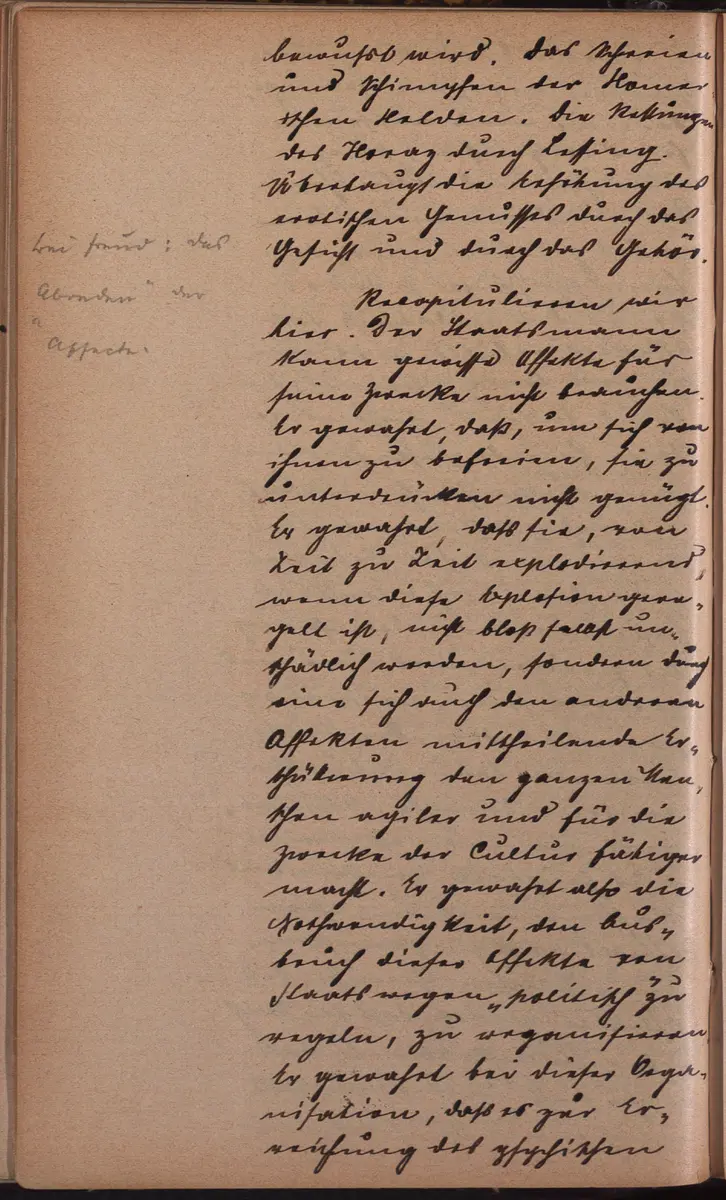 bewußt wird. Das Schreien
und Schimpfen der Homeri-
schen Helden. Die Rettungen
des Horaz durch Lessing.
Überhaupt die Erhöhung des
erotischen Genusses durch das
Gesicht und durch das Gehör.
bei Freud: das
"Abreden" der
Affecte.
Recapitulieren wir
hier. Der Staatsmann
kann gewisse Affekte für
seine Zwecke nicht brauchen.
Er gewahrt, daß, um sich von
ihnen zu befreien, sie zu
unterdrücken nicht genügt.
Er gewahrt, daß sie, von
Zeit zu Zeit explodierend,
wenn diese Explosion gere-
gelt ist, nicht bloß selbst un-
schädlich werden, sondern durch
eine sich auch den anderen
Affekten mittheilende Er-
schütterung den ganzen Men-
schen agiler und für die
Zwecke der Cultur fähiger
macht. Er gewahrt also die
Nothwendigkeit, den Aus-
bruch dieser Affekte von
Staatswegen "politisch" zu
regeln, zu organisieren.
Er gewahrt bei dieser Orga-
nisation, daß es zur Er-
reichung des psychischen